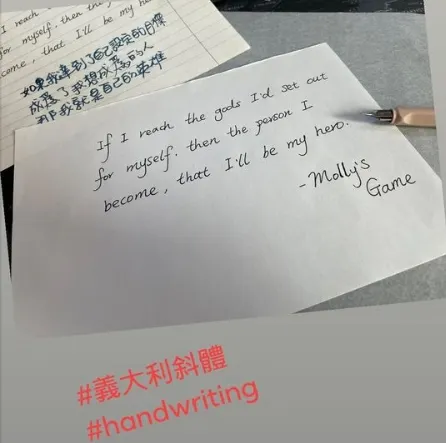 I reach
for myself. then the
come, that I'll be my hero
如果我達到了自己設定的目標
成為了我想成為的人
那我就是自己的英雄
If I reach the goals I'd set out
for myself. then the person I
become, that I'll be my hero.
-Molly's
Game
#義大利斜體
#handwriting